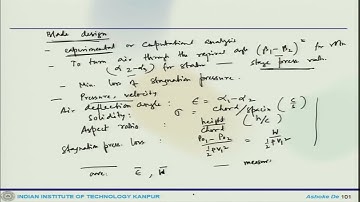 Blade design
- experimental or computational analysis
- To turn air through the required angle (β1-β2) for
(α2-α3) for stator — stage press ratio.
- Min. loss of stagnation pressure.
- Pressure, velocity
Air deflection angle : ε = α1-α2
Solidity : σ = chord/spacing (c/s)
Aspect ratio : height/chord (h/c)
Stagnation press. loss : P01-P02 / ½ρV1² = W̄ / ½ρV1²
ave. ε, W̄ — measure
INDIAN INSTITUTE OF TECHNOLOGY KANPUR
Ashoke De 101